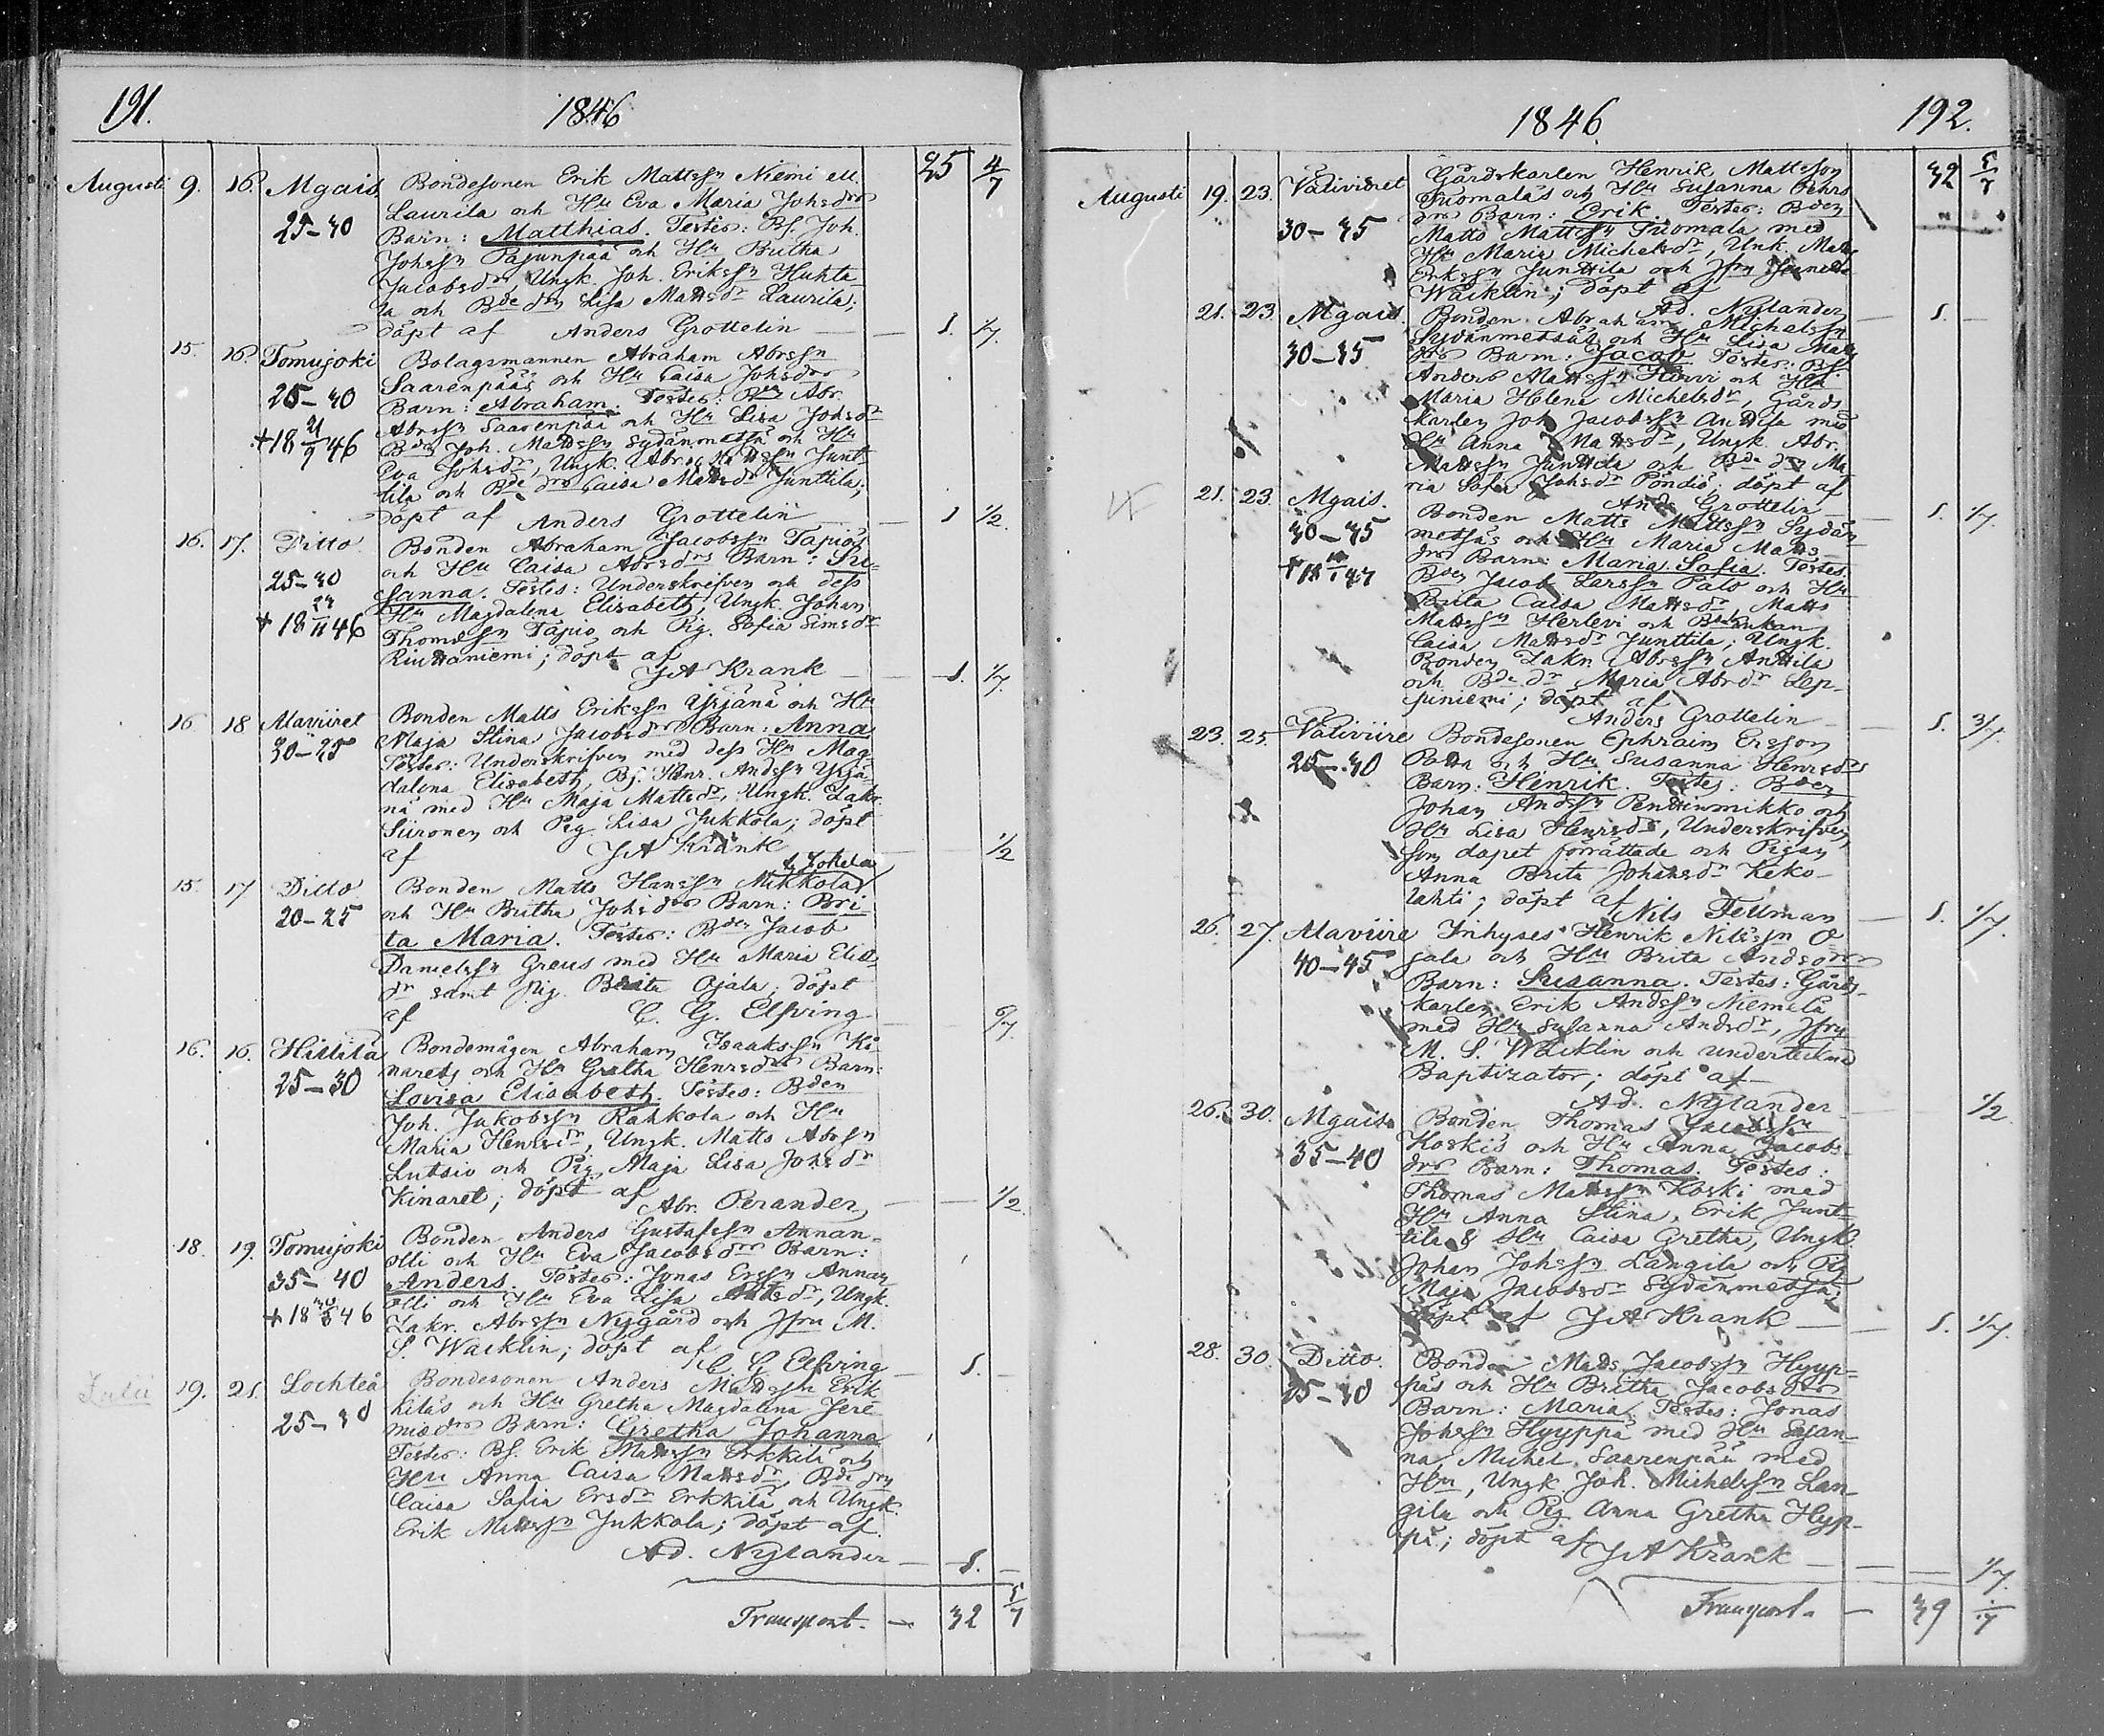 191.
1846
25 4/7
Augusti 9. 16. Mgais. Bondesonen Erik Mattssn Niemi ell.
Laurila och Hu Eva Maria Johsdrs
25-30 Barn: Matthias. Testes: Bs. Joh.
Johssn Pajunpää och Hu Britha
Jacobsdr, Ungk. Joh. Erikssn Huhta-
la och Bde dn Lisa Mattsdr Laurila;
döpt af Anders Grottelin — 1. 1/7.
15. 16. Tomujoki Bolagsmannen Abraham Abrssn
Saarenpääs och Hu Caisa Johsdrs
25-30 Barn: Abraham. Testes: Bdn Abr.
+ 18 21/9 46 Abrssn Saarenpää och Hu Lisa Johsdr
Bdn Joh. Mattssn Sydänmetsä och Hu
Eva Johsdr, Ungk. Abr. Mattssn Junt-
tila och Bde dra Caisa Mattsdr Junttila;
döpt af Anders Grottelin — 1 1/2.
16. 17. Ditto Bonden Abraham Jacobssn Tapios
och Hu Caisa Abrsdrs Barn: Su-
25-30 sanna. Testes: Underskrifven och dess
+ 18 24/11 46 Hu Magdalena Elisabeth, Ungk. Johan
Thomessn Tapio och Pig. Sofia Simsdr
Riuttaniemi; döpt af
J A Krank — 1. 1/7.
16 18 Alaviiret Bonden Matts Erikssn Yrjänä och Hu
Maja Stina Jacobsdrs Barn: Anna
30-25 Testes: Underskrifven med dess Hu Mag-
dalena Elisabeth, Bs. Henr. Andssn Yrjä-
nä med Hu Maja Mattsdr, Ungk. Zakr.
Siironen och Pig. Lisa Jukkola; döpt
af J A Krank — 1/2
l. Jokela
15. 17 Ditto Bonden Matts Hanssn Mikkolas
och Hu Britha Johsdrs Barn: Bri-
20-25 ta Maria. Testes: Bden Jacob
Danielssn Greus med Hu Maria Elis-
dr samt Pig. Brita Ojala; döpt
af C. G. Elfving 6/7.
16. 16. Hillilä Bondemågen Abraham Isaakssn Ki-
narets och Hu Gretha Henrsdrs Barn:
25-30 Lovisa Elisabeth. Testes: Bden
Joh. Jakobssn Rahkola och Hu
Maria Henrsdr, Ungk. Matts Abrsn
Luttsio och Pig. Maja Lisa Johsdr
Kinaret; döpt af
Abr. Perander — 1/2
18. 19. Tomujoki Bonden Anders Gustafssn Annan-
olli och Hu Eva Jacobsdrs Barn:
35-40 Anders. Testes: Jonas Erssn Annan-
olli och Hu Eva Lisa dr, Ungk.
+ 18 46 Zakr. Abrssn Nygård och Jfru M.
S. Wacklin; döpt af
C G Elfving 1. —
Julii 19. 21. Lochteå Bondesonen Anders Mattssn Erk-
kiläs och Hu Gretha Magdalena Jere-
25-30 miædrs Barn: Gretha Johanna
Testes: Bs. Erik Mattssn Erkkilä och
Hu Anna Caisa Mattsdr, Bde dn
Caisa Sofia Ersdr Erkkilä och Ungk.
Erik Mattssn Jukkola; döpt af
Ad. Nylander — 1. —
Transport. — 32 5/7
1846
192.
32 5/7
Augusti 19. 23. Wäliviiret Gårdskarlen Henrik Mattsson
Tuomalas och Hu Susanna Pehrs-
30-35 drs Barn: Erik. Testes: Bden
Matts Mattssn Tuomala med
Hu Maria Michelsdr, Unk. Matts
Erikssn Junttila och Jfru
Wacklin; döpt af
Ad. Nylander 1. —
21. 23. Mgais. Bonden Abraham Michelssn
Sydänmetsäs och Hu Lisa Matts-
30-35 drs Barn: Jacob Testes: Bs.
Anders Mattssn Hirvi och Hu
Maria Helena Michelsdr, Gårds-
karlen Joh Jacobssn Anttila med
Hu Anna Mattsdr, Ungk. Abr.
Mattssn Junttila och Bde dn Ma-
ria Sofia Johsdr Pöndiö. döpt af
Ands Grottelin 1. 1/7.
21. 23. Mgais. Bonden Matts Mattssn Sydän-
metsäs och Hu Maria Matts-
30-35 drs Barn: Maria Sofia. Testes:
+ 18 47 Bden Jacob Larssn Palo och Hu
Brita Caisa Mattsdr, Matts
Mattssn Herlevi och
Caisa Mattsdr Junttila; Ungk.
Bonden Zakr. Abrssn Anttila
och Bde dr Maria Abrdr Lep-
suniemi; döpt af
Anders Grottelin — 1. 3/7.
23. 25. Väliviire Bondesonen Ephraim Ersson
och Hu Susanna Henrsdrs
25-30 Barn: Henrik. Testes: Bden
Johan Andssn Penttinmikko och
Hu Lisa Henrsdr, Underskrifven,
som dopet förrättade och Pigan
Anna Brita Johansdr Keko-
lahti; döpt af Nils Fellman — 1. 1/7.
26. 27. Alaviire Inhyses Henrik Nilssn O-
jala och Hu Brita Andsdrs
40-45 Barn: Susanna. Testes: Gårds-
karlen Erik Andssn Niemelä
med Hu Susanna Andsdr, Jfru
M. S. Wacklin och undertecknad
Baptizator; döpt af
Ad. Nylander — 1/2
26. 30. Mgais Bonden Thomas Jacobssn
Koskis och Hu Anna Jacobs-
35-40 drs Barn: Thomas. Testes:
Thomas Mattssn Koski med
Hu Anna Stina, Erik Junt-
tila & Hu Caisa Gretha, Ungk.
Johan Johssn Längilä och Pig
Maja Jacobsdr Sydänmetsä;
döpt af J A Krank — 1. 1/7.
28. 30. Ditto. Bonden Matts Jacobssn Hyyp-
päs och Hu Britha Jacobsdrs
25-30 Barn: Maria. Testes: Jonas
Johssn Hyyppä med Hu Susan-
na, Michel Saarenpää med
Hu, Ungk. Joh. Michelssn Län-
gilä och Pig Anna Gretha Hyp-
pä; döpt af J A Krank — 1/7.
Transport. — 39 1/7